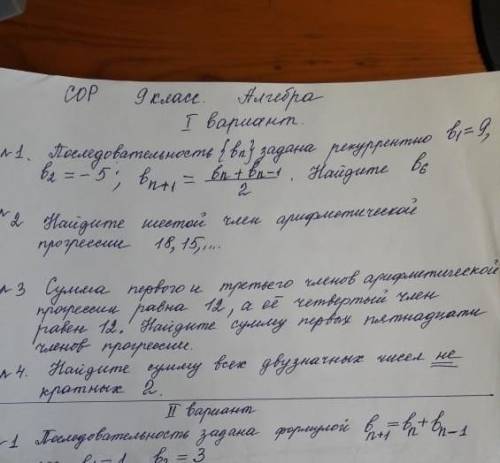 СОР 9 класс. Алгебра
I вариант.
№1. Последовательность {bn} задана рекуррентно b1=9,
b2=-5; bn+1 = (bn+bn-1)/2. Найдите b6
№2 Найдите шестой член арифметической
прогрессии 18, 15,...
№3 Сумма первого и третьего членов арифметической
прогрессии равна 12, а её четвертый член
равен 12. Найдите сумму первых пятнадцати
членов прогрессии.
№4. Найдите сумму всех двузначных чисел не
кратных 2.
II вариант
№1 Последовательность задана формулой bn+1=bn+bn-1
b1=1 b2=3